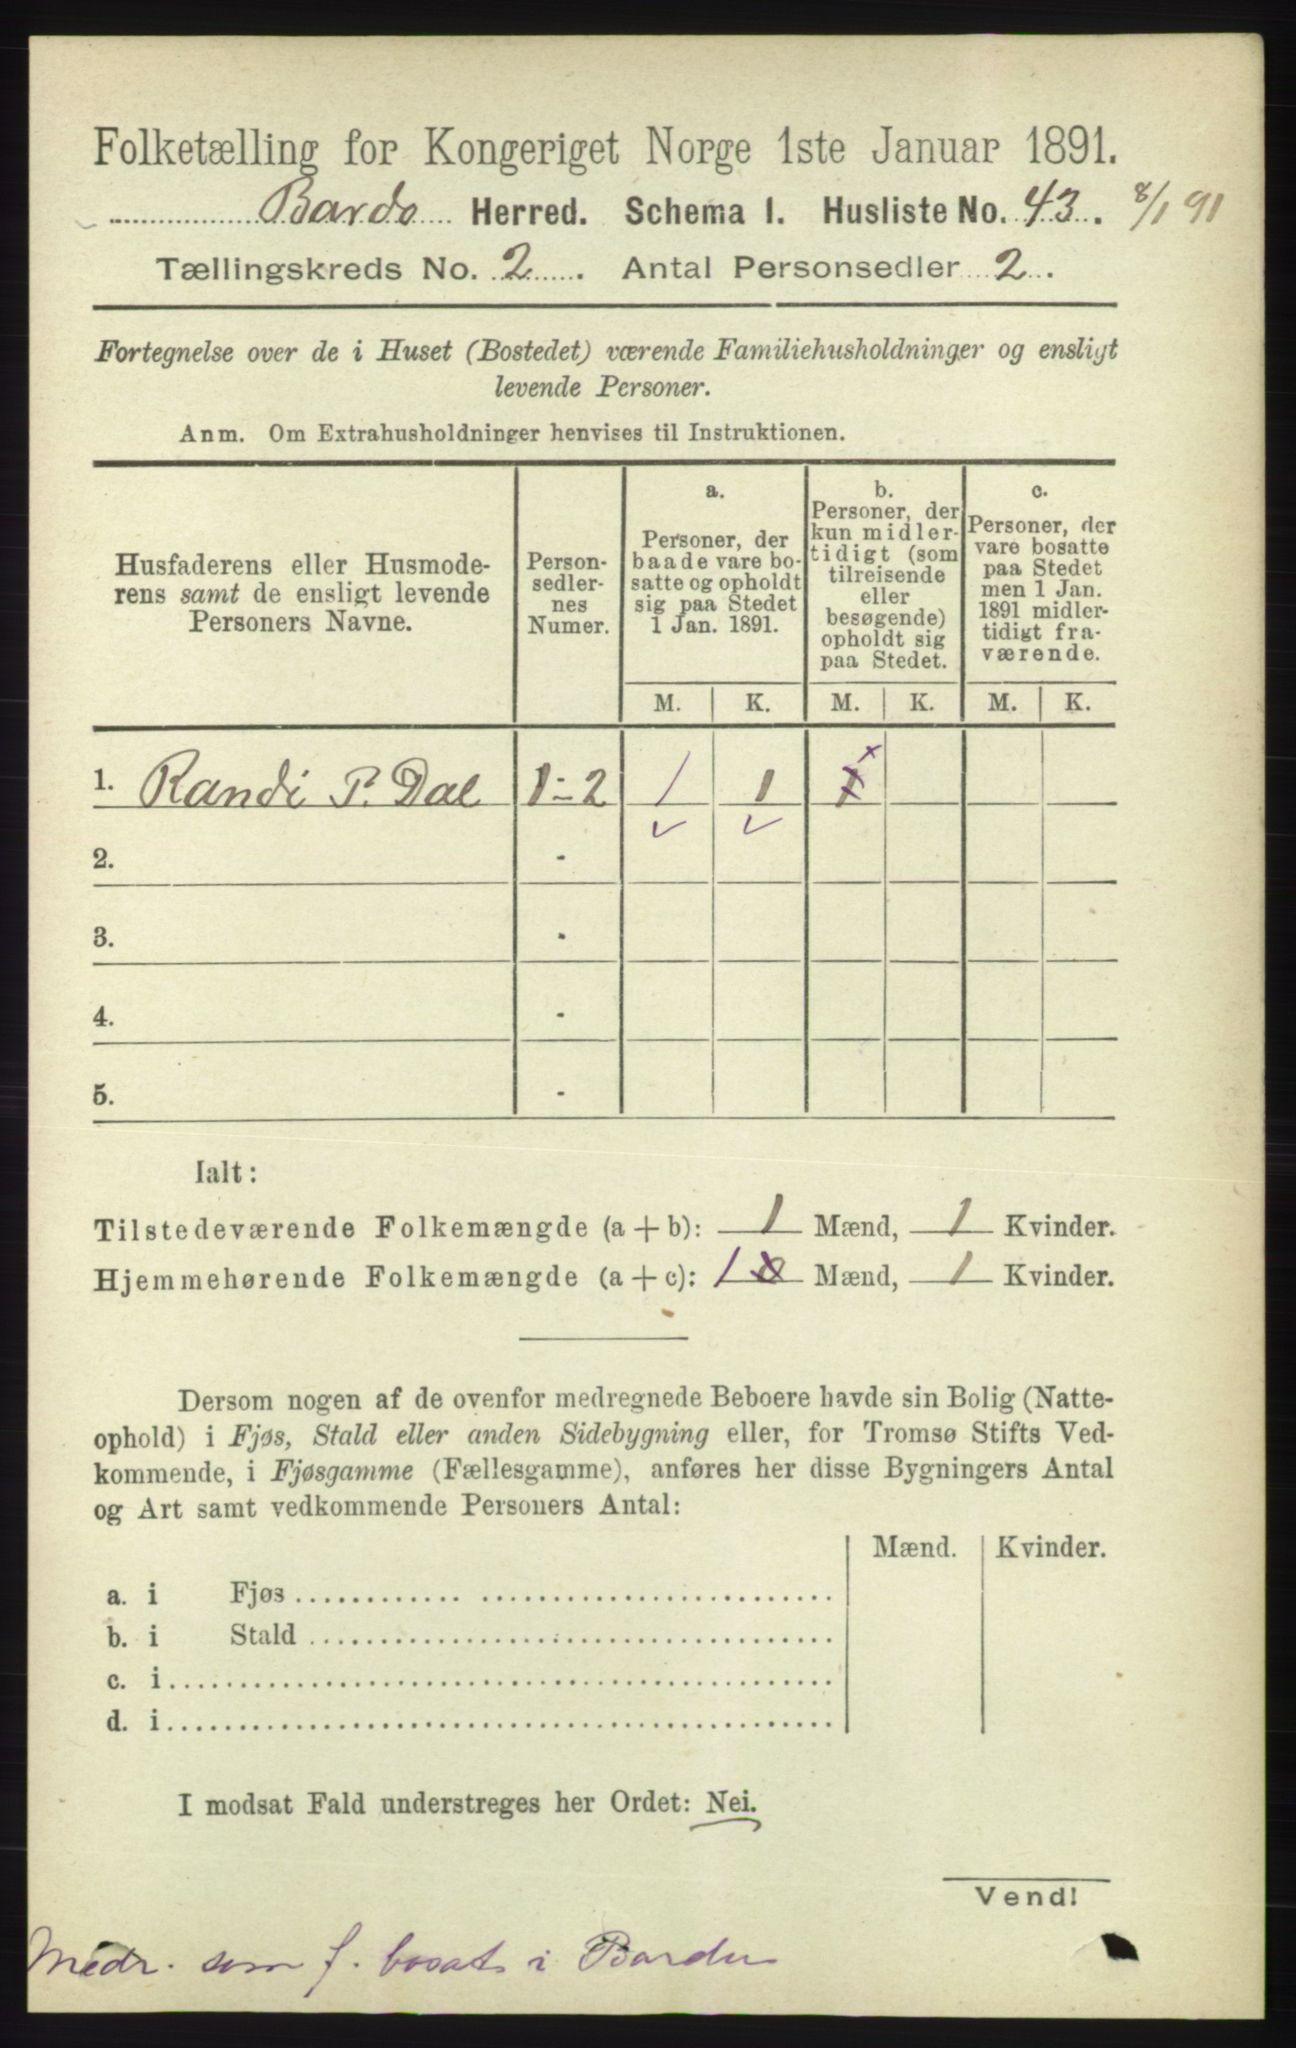 Folketælling for Kongeriget Norge 1ste Januar 1891.
Bardo Herred. Schema I. Husliste No. 43. 8/1 91
Tællingskreds No. 2. Antal Personsedler 2.
Fortegnelse over de i Huset (Bostedet) værende Familiehusholdninger og ensligt
levende Personer.
Anm. Om Extrahusholdninger henvises til Instruktionen.
Husfaderens eller Husmode-
rens samt de ensligt levende
Personers Navne.
Person-
sedler-
nes
Numer.
a.
Personer, der
baade vare bo-
satte og opholdt
sig paa Stedet
1 Jan. 1891.
b.
Personer, der
kun midler-
tidigt (som
tilreisende
eller
besøgende)
opholdt sig
paa Stedet.
c.
Personer, der
vare bosatte
paa Stedet
men 1 Jan.
1891 midler-
tidigt fra-
værende.
M. K. M. K. M. K.
1. Randi P. Dal 1-2 1 1 1 x
2. -
3. -
4. -
5. -
Ialt:
Tilstedeværende Folkemængde (a + b): 1 Mænd, 1 Kvinder.
Hjemmehørende Folkemængde (a + c): 1 0 Mænd, 1 Kvinder.
Dersom nogen af de ovenfor medregnede Beboere havde sin Bolig (Natte-
ophold) i Fjøs, Stald eller anden Sidebygning eller, for Tromsø Stifts Ved-
kommende, i Fjøsgamme (Fællesgamme), anføres her disse Bygningers Antal
og Art samt vedkommende Personers Antal:
Mænd. Kvinder.
a. i Fjøs
b. i Stald
c. i
d. i
I modsat Fald understreges her Ordet: Nei.
Vend!
Medr. som f. bosat i Bardu